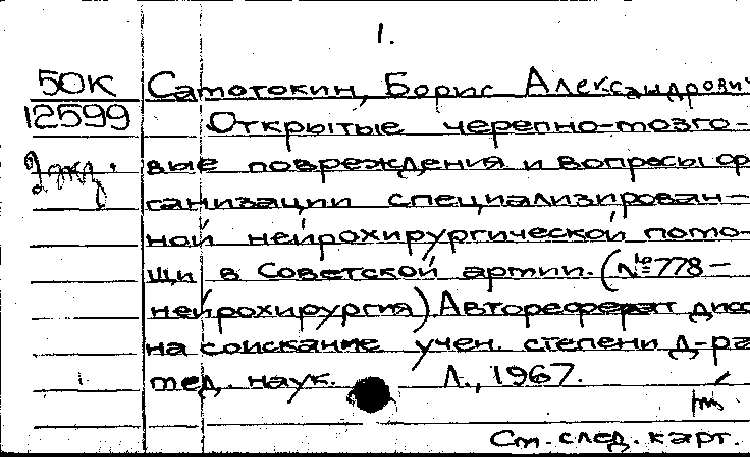 1.
50К Самотокин, Борис Александрович
12599 Открытые черепно-мозго-
2 экз. вые повреждения и вопросы ор
ганизации специализирован-
ной нейрохирургической помо-
щи в Советской армии. (№ 778 -
нейрохирургия) Автореферат дисс
на соискание учен. степени д-ра
мед. наук. Л., 1967.
См. след. карт.